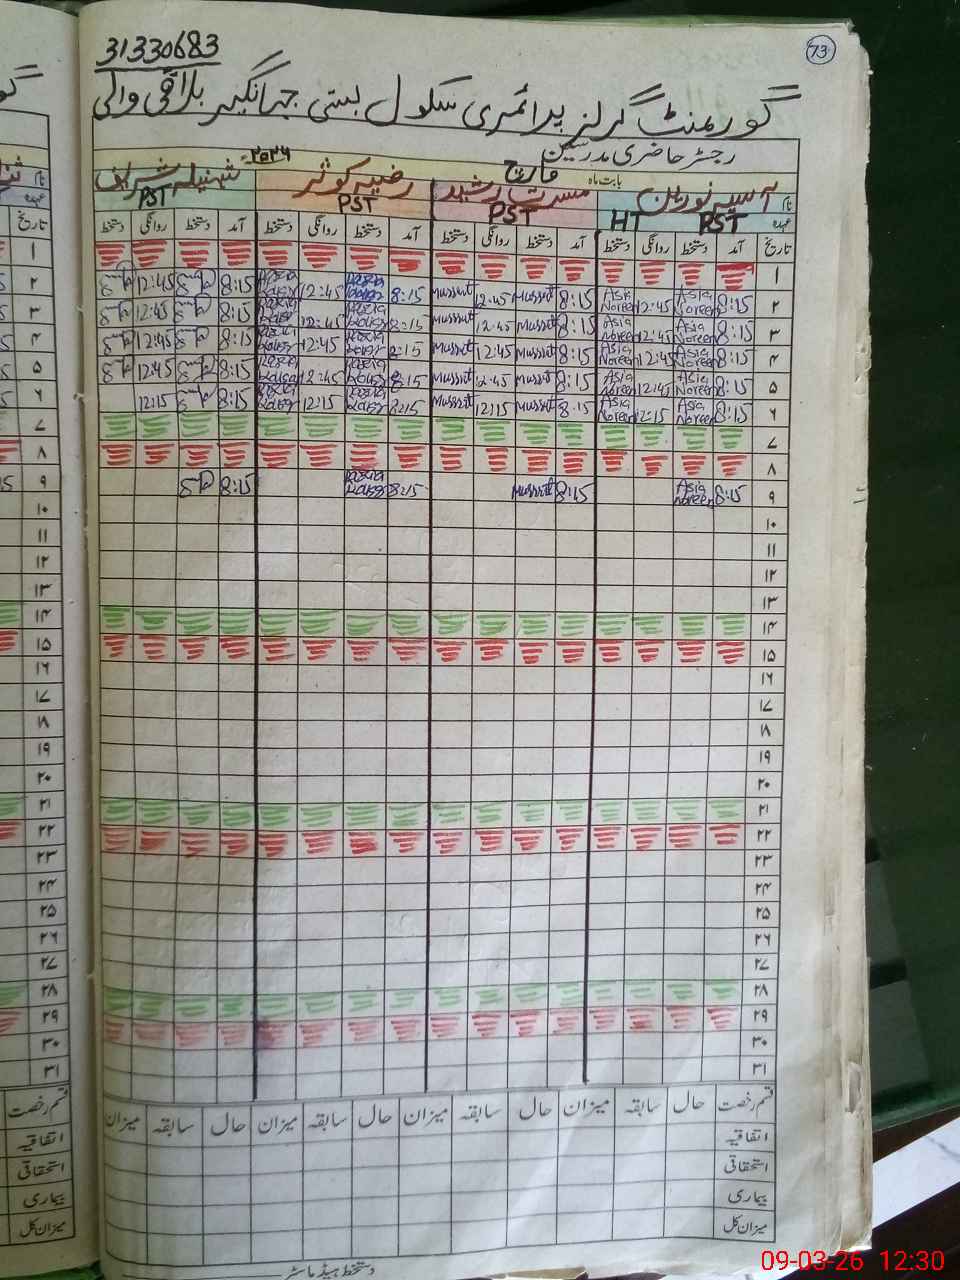 73
31330683
گورنمنٹ گرلز پرائمری سکول بستی جہانگیر بلاقی والی
رجسٹر حاضری مدرسین
بابت ماہ مارچ ۲۰۲۶ء
نام آسیہ نورین مسرت رشید رضیہ کوثر شہنیلہ شریف
عہدہ PST HT PST PST PST
تاریخ آمد دستخط روانگی دستخط آمد دستخط روانگی دستخط آمد دستخط روانگی دستخط آمد دستخط روانگی دستخط
۱
۲ 8:15 Asia Noreen 12:45 Asia Noreen 8:15 Mussrat 12:45 Mussrat 8:15 Razia Kausar 12:45 Razia Kausar 8:15 12:45
۳ 8:15 Asia Noreen 12:45 Asia Noreen 8:15 Mussrat 12:45 Mussrat 8:15 Razia Kausar 12:45 Razia Kausar 8:15 12:45
۴ 8:15 Asia Noreen 12:45 Asia Noreen 8:15 Mussrat 12:45 Mussrat 8:15 Razia Kausar 12:45 Razia Kausar 8:15 12:45
۵ 8:15 Asia Noreen 12:45 Asia Noreen 8:15 Mussrat 12:45 Mussrat 8:15 Razia Kausar 12:45 Razia Kausar 8:15 12:45
۶ 8:15 Asia Noreen 12:15 Asia Noreen 8:15 Mussrat 12:15 Mussrat 8:15 Razia Kausar 12:15 Razia Kausar 8:15 12:15
۷
۸
۹ 8:15 Asia Noreen 8:15 Mussrat 8:15 Razia Kausar 8:15
۱۰
۱۱
۱۲
۱۳
۱۴
۱۵
۱۶
۱۷
۱۸
۱۹
۲۰
۲۱
۲۲
۲۳
۲۴
۲۵
۲۶
۲۷
۲۸
۲۹
۳۰
۳۱
قسم رخصت حال سابقہ میزان حال سابقہ میزان حال سابقہ میزان حال سابقہ میزان
اتفاقیہ
استحقاقی
بیماری
میزان کل
دستخط ہیڈ ماسٹر
09-03-26 12:30